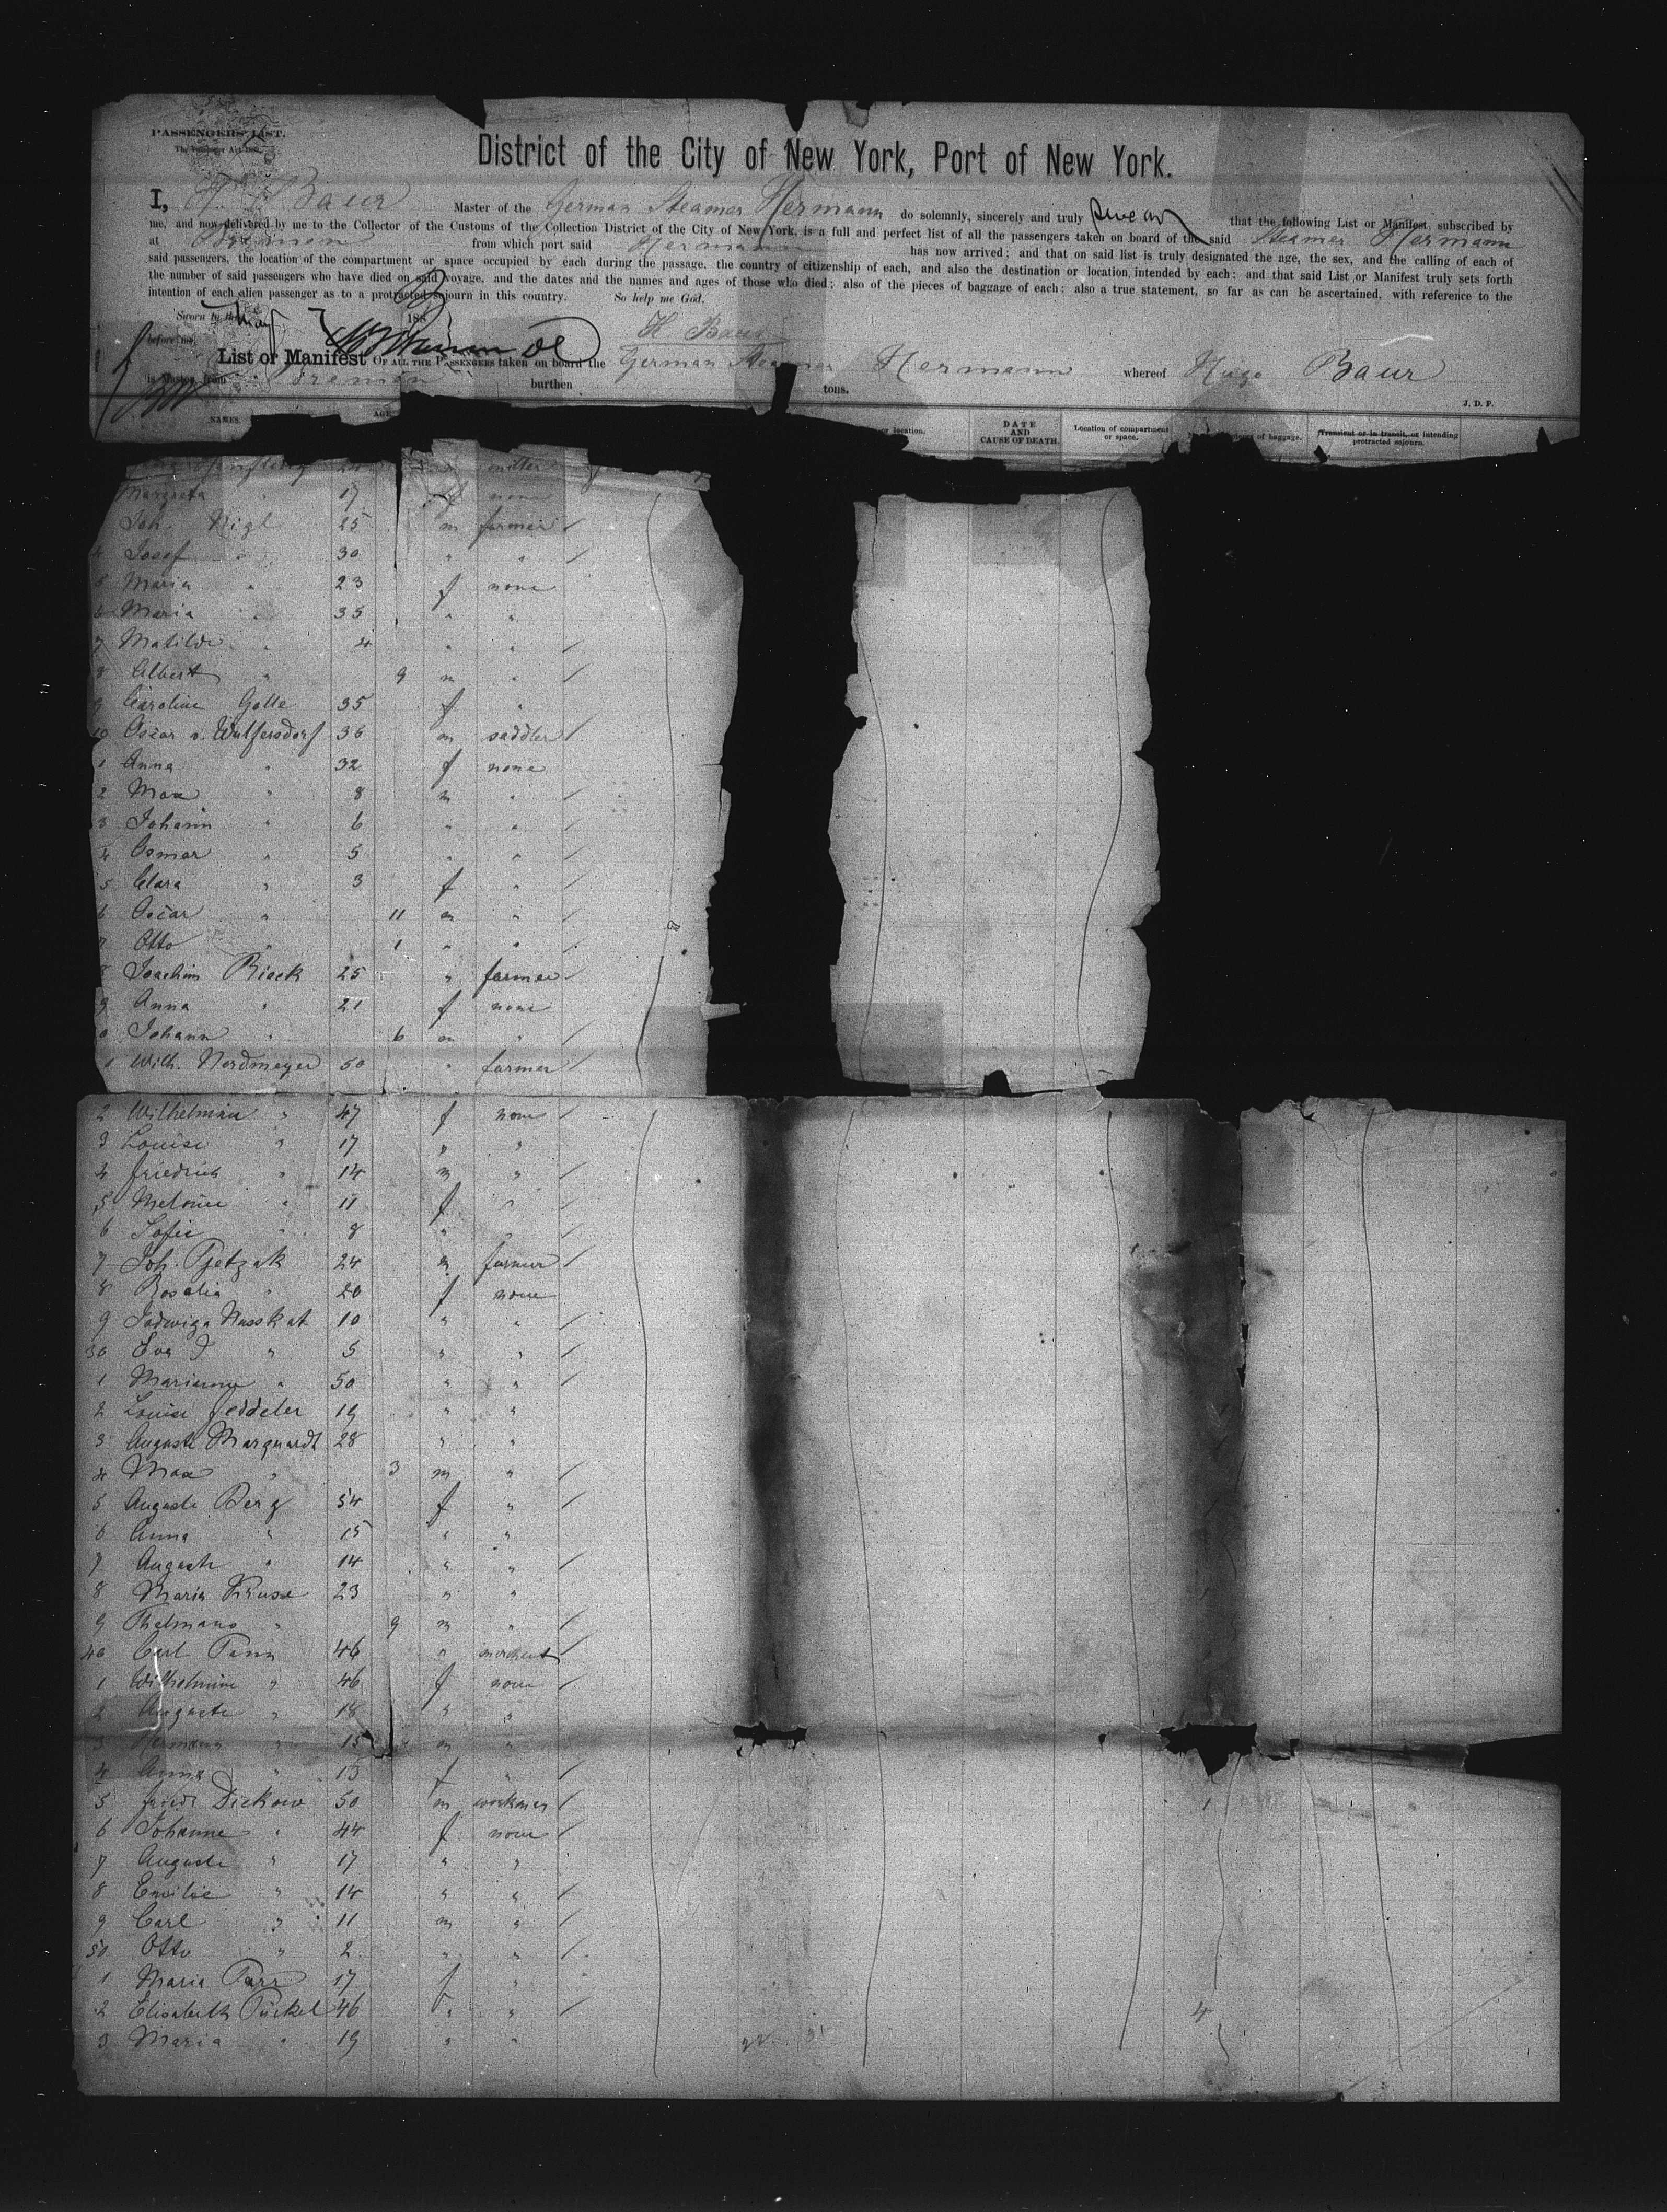 PASSENGERS' LIST.
District of the City of New York, Port of New York.
I, H. Baur Master of the German Steamer Hermann do solemnly, sincerely and truly swear that the following List or Manifest, subscribed by
me, and now delivered by me to the Collector of the Customs of the Collection District of the City of New York, is a full and perfect list of all the passengers taken on board of the said Steamer Hermann
at Bremen from which port said Hermann has now arrived; and that on said list is truly designated the age, the sex, and the calling of each of
said passengers, the location of the compartment or space occupied by each during the passage, the country of citizenship of each, and also the destination or location intended by each; and that said List or Manifest truly sets forth
the number of said passengers who have died on said voyage, and the dates and the names and ages of those who died; also of the pieces of baggage of each; also a true statement, so far as can be ascertained, with reference to the
intention of each alien passenger as to a protracted sojourn in this country. So help me God.
Sworn by the May 188
before me H Baur
List or Manifest OF ALL THE PASSENGERS taken on board the German Steamer Hermann whereof Hugo Baur
is Master, from Bremen burthen tons.
J. D. P.
NAMES. location. DATE AND CAUSE OF DEATH. Location of compartment or space. of baggage. Transient or in transit, or intending protracted sojourn.
24 miller
Margreta " 17 f none
Joh. Nigl 25 m farmer /
4 Josef " 30 " " /
5 Maria " 23 f none
6 Maria " 35 " "
7 Matilde " 4 " " /
8 Albert " 9 m " /
9 Caroline Golle 35 f "
10 Oscar v. Wulfersdorf 36 m saddler /
1 Anna " 32 f none
2 Max " 8 m " /
3 Johann " 6 " " /
4 Osmar " 5 " " /
5 Clara " 3 f " /
6 Oscar " 11 m " /
7 Otto " 1 " " /
8 Joachim Rieck 25 " farmer /
9 Anna " 21 f none
0 Johann " 6 m " /
1 Wilh. Nordmeyer 50 " farmer /
2 Wilhelmine " 47 f none /
3 Louise " 17 " "
4 Friedrich " 14 m " /
5 Melonie " 11 f " /
6 Sofie " 8 " " /
7 Joh. Pjetzak 24 m farmer /
8 Rosalia " 20 f none
9 Jadwiga Nusskat 10 " " /
30 Eva " 5 " " /
1 Marianne " 50 " " /
2 Louise Jeddeler 19 " "
3 Auguste Marquardt 28 " "
4 Max " 3 m " /
5 Auguste Berg 54 f " /
6 Anna " 15 " "
7 Auguste " 14 " " /
8 Maria Kruse 23 " "
9 Thelmano " 9 m " /
40 Carl Pann 46 " merchant /
1 Wilhelmine " 46 f none /
2 Auguste " 18 " "
3 Hermann " 15 m "
4 Anna " 13 f " /
5 Friedr Dickow 50 m workman /
6 Johanne " 44 f none /
7 Auguste " 17 " "
8 Emilie " 14 " " /
9 Carl " 11 m " /
50 Otto " 2 " " /
1 Maria Parr 17 f "
2 Elisabeth Pückel 46 " " / 4
3 Maria " 19 " "